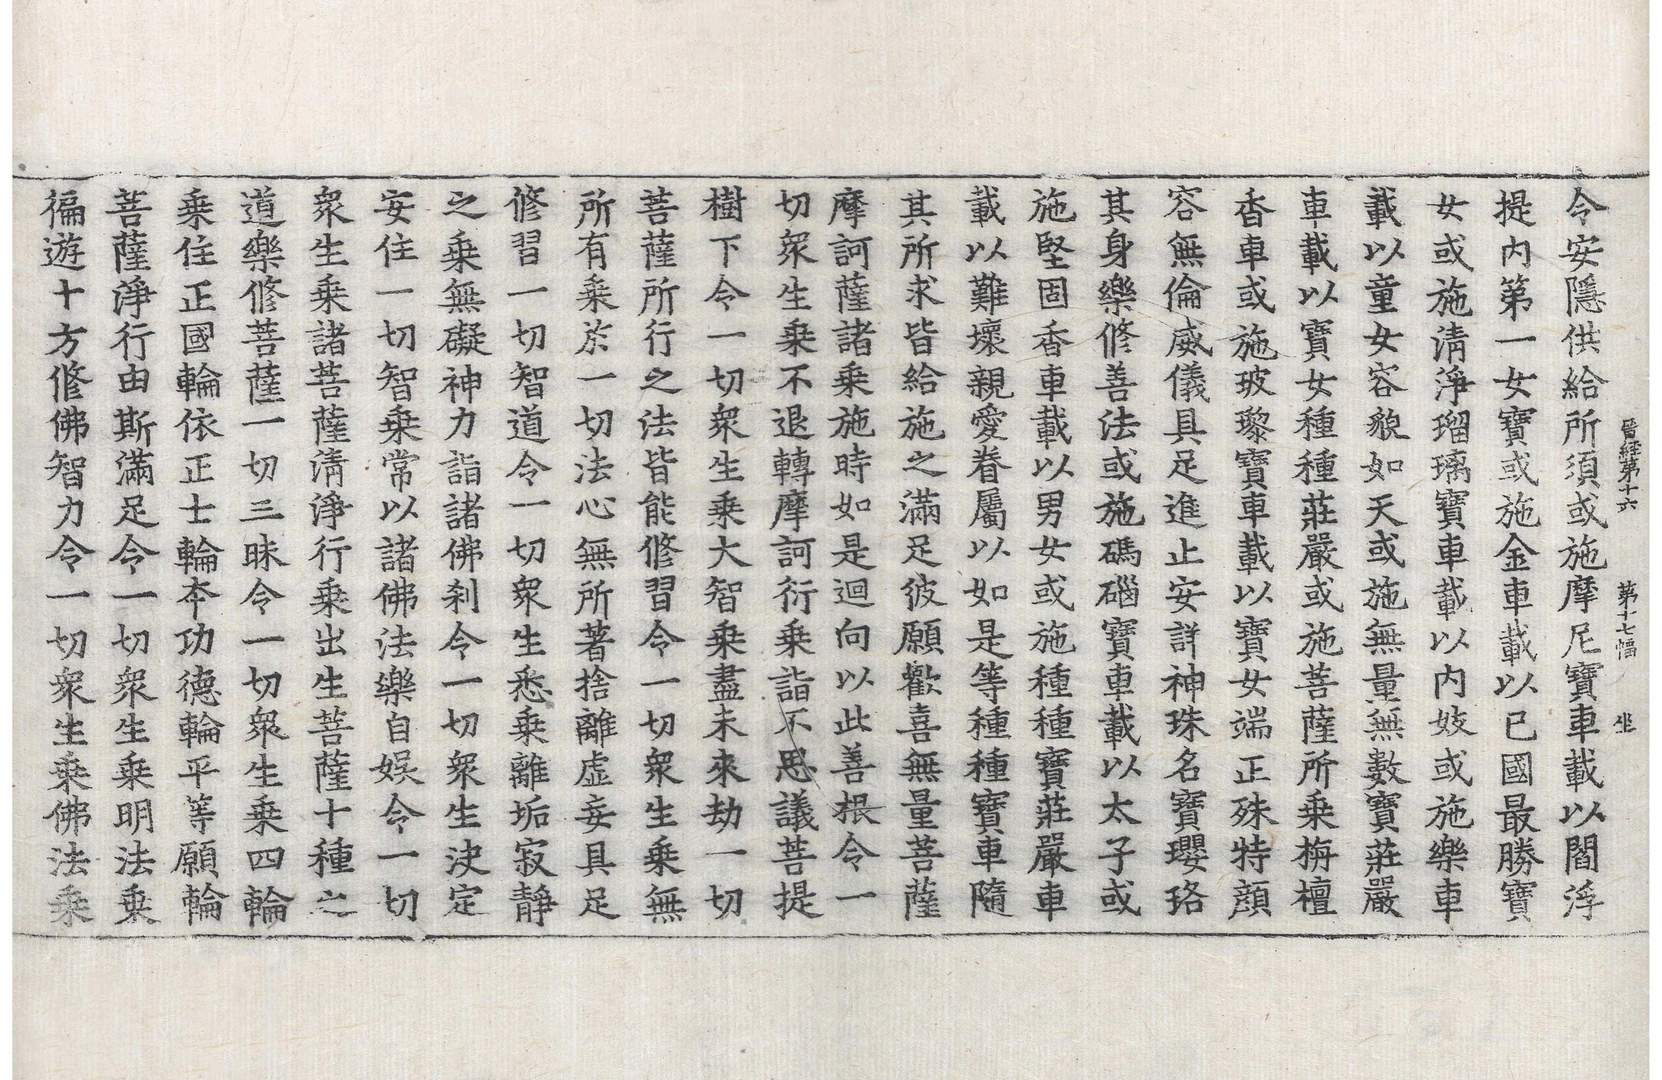 晉經第十六　第十七幅　坐
令安隱供給所須或施摩尼寶車載以閻浮
提内第一女寶或施金車載以已國最勝寶
女或施淸淨瑠璃寶車載以内妓或施樂車
載以童女容貌如天或施無量無數寶莊嚴
車載以寶女種種莊嚴或施菩薩所乗栴檀
香車或施玻瓈寶車載以寶女端正殊特顔
容無倫威儀具足進止安詳神珠名寶瓔珞
其身樂修善法或施碼碯寶車載以太子或
施堅固香車載以男女或施種種寶莊嚴車
載以難壞親愛眷屬以如是等種種寶車隨
其所求皆給施之滿足彼願歡喜無量菩薩
摩訶薩諸乗施時如是迴向以此善根令一
切衆生乗不退轉摩訶衍乗詣不思議菩提
樹下令一切衆生乗大智乗盡未來劫一切
菩薩所行之法皆能修習令一切衆生乗無
所有乗於一切法心無所著捨離虛妄具足
修習一切智道令一切衆生悉乗離垢寂靜
之乗無礙神力詣諸佛刹令一切衆生決定
安住一切智乗常以諸佛法樂自娱令一切
衆生乗諸菩薩淸淨行乗出生菩薩十種之
道樂修菩薩一切三昧令一切衆生乗四輪
乗住正國輪依正士輪夲功德輪平等願輪
菩薩淨行由斯滿足令一切衆生乗明法乗
徧遊十方修佛智力令一切衆生乗佛法乗